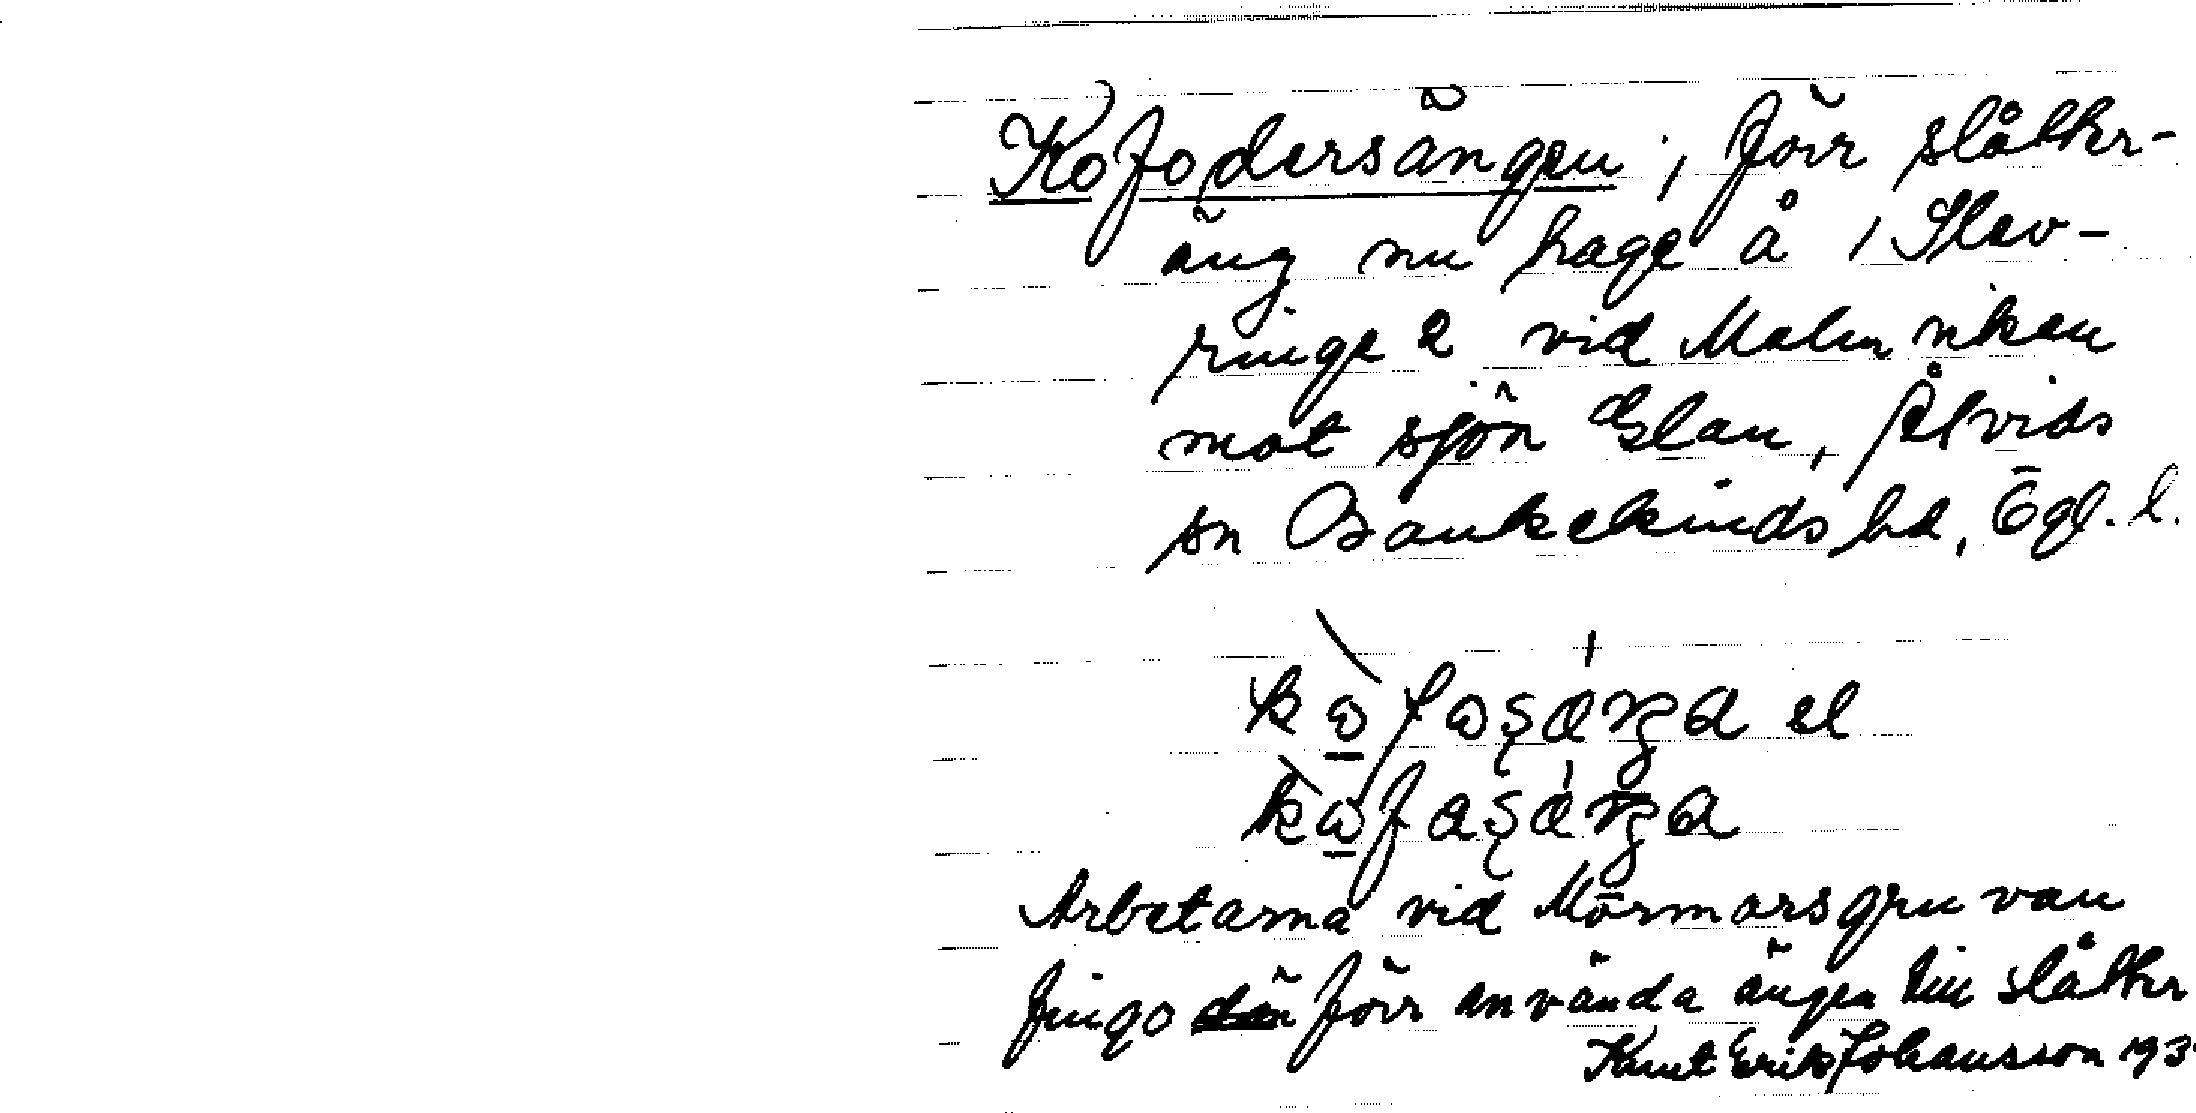 Kofodersängen, förr slåtter-
äng nu hage å 1 Slev-
ringe 2 vid Malmviken
mot sjön Glan, Älvids
sn Bankekinds hd, Ögl. l.
el
Arbetarna vid Mormorsgruvan
fingo där förr använda ängen till slåtter
Knut Erik Johansson 193